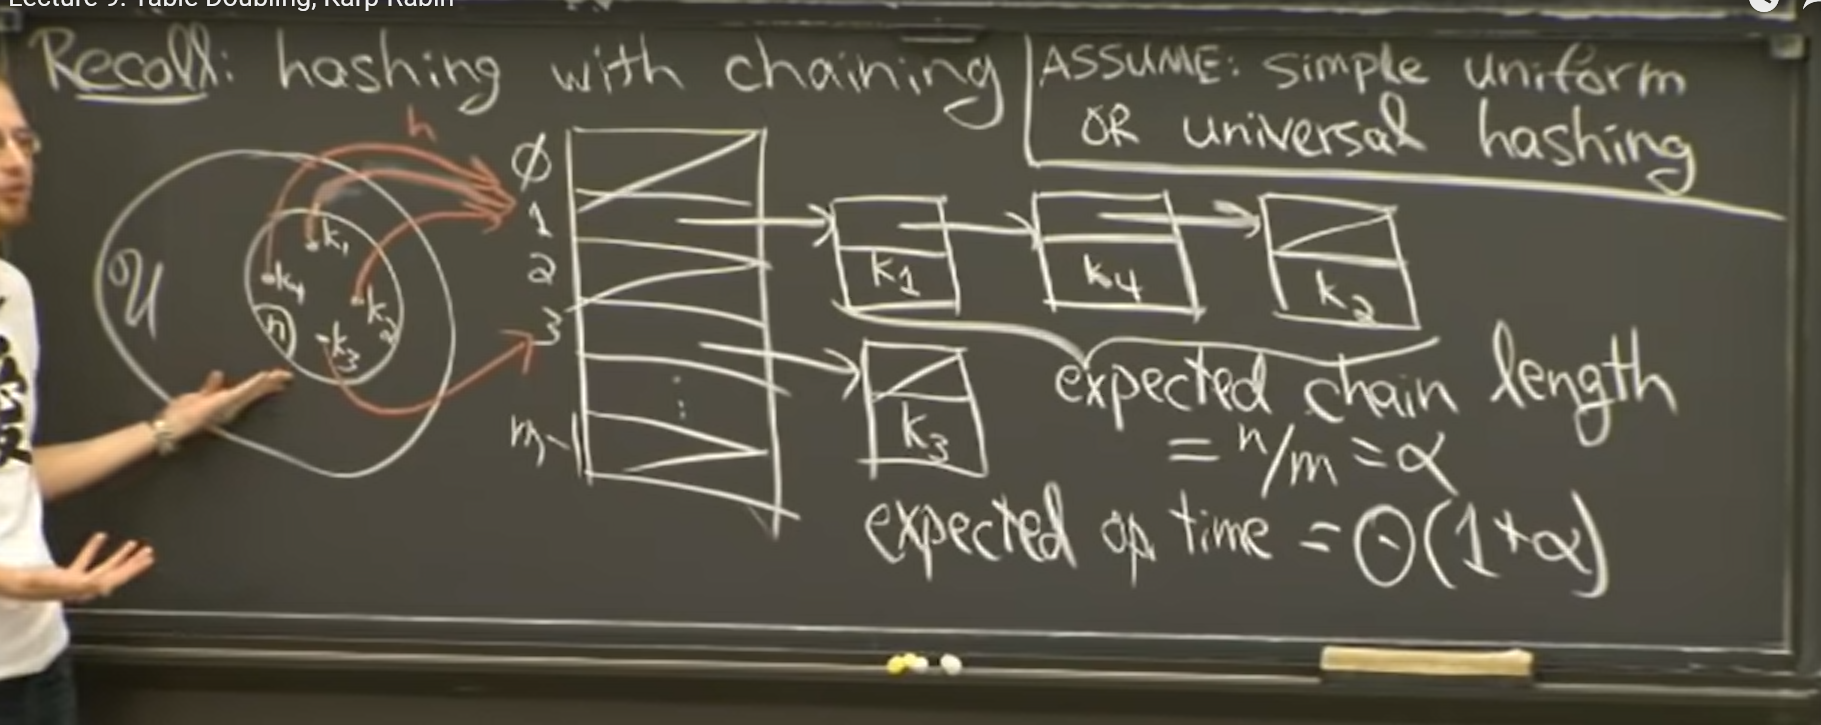 Lecture 9: Table Doubling, Karp-Rabin
Recall: hashing with chaining
ASSUME: simple uniform
OR universal hashing
h
U
k1
k4
k2
n
k3
0
1
2
3
⋮
m-1
k1
k4
k2
k3
expected chain length
= n/m = α
expected op. time = Θ(1+α)